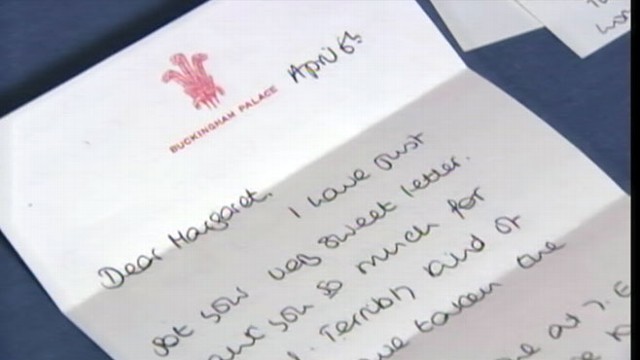 BUCKINGHAM PALACE
April 6th
Dear Margaret.
I have just
got your very sweet letter.
you so much for
Terribly kind of
taken the
at 7.